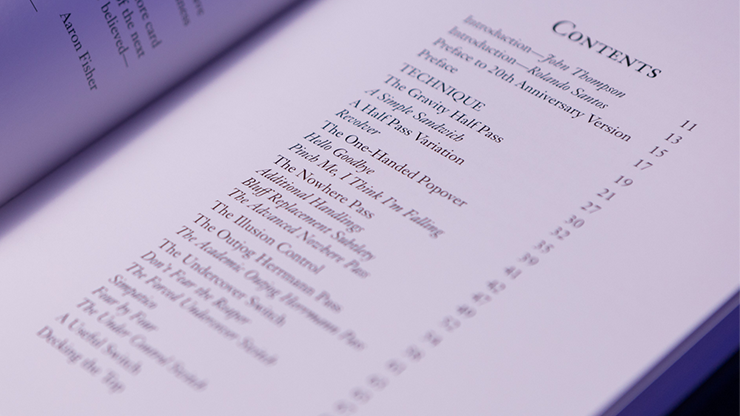 ore card
of the next
believed—
Aaron Fisher
CONTENTS
Introduction—John Thompson 11
Introduction—Rolando Santos 13
Preface to 20th Anniversary Version 15
Preface 17
TECHNIQUE 19
The Gravity Half Pass 21
A Simple Sandwich 27
A Half Pass Variation 30
Revolver 32
The One-Handed Popover 35
Hello Goodbye 39
Pinch Me, I Think I'm Falling
The Nowhere Pass
Additional Handlings
Bluff Replacement Subtlety
The Advanced Nowhere Pass
The Illusion Control
The Outjog Herrmann Pass
The Academic Outjog Herrmann Pass
The Undercover Switch
Don't Fear the Reaper
The Forced Undercover Switch
Sympatico
Four by Four
The Under Control Switch
A Useful Switch
Decking the Top